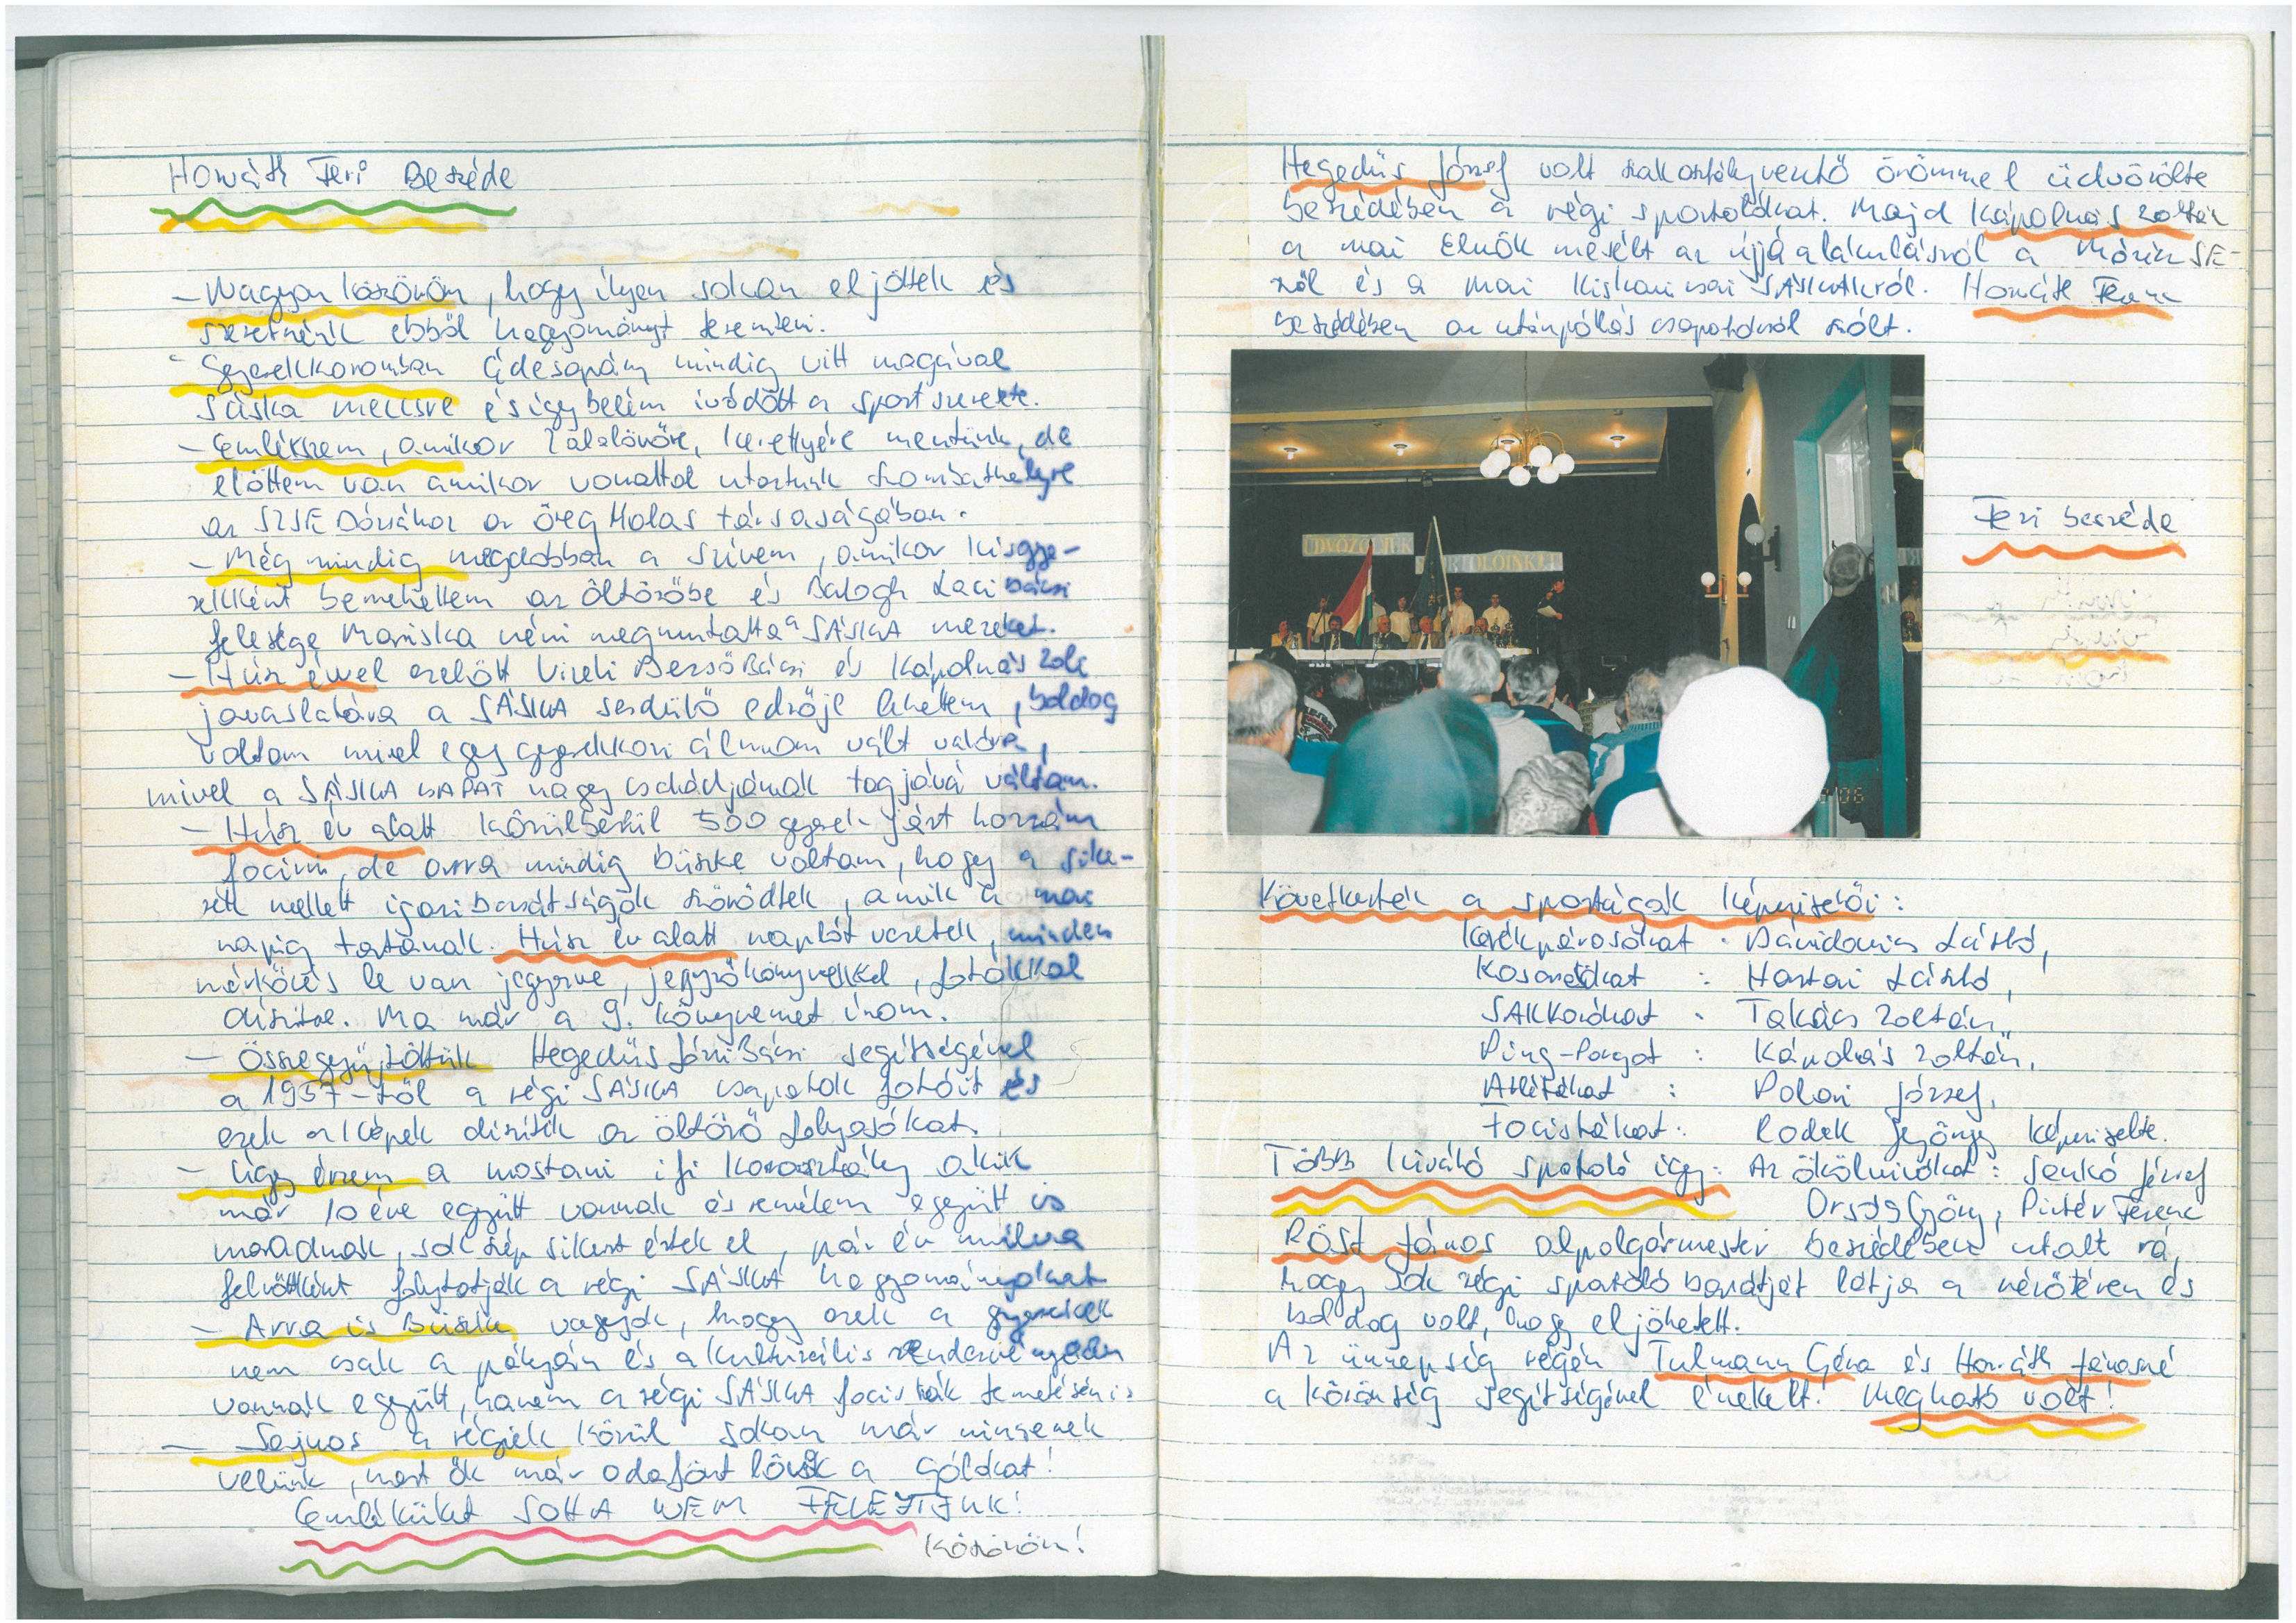 Horváth Feri Beszéde
- Nagyon köszönöm, hogy ilyen sokan eljöttek és
szeretnénk ebből hagyományt teremteni.
- Gyerekkoromban édesapám mindig vitt magával
Sáska meccsre és így belém ivódott a sport szeretete.
- Emlékszem, amikor Zalalövőre, Kerettyére mentünk, de
előttem van amikor vonattal utaztunk Szombathelyre
az SZSE Dózsához az öreg Molas társaságában.
- Még mindig megdobban a szívem, amikor kisgye-
rekként bemehettem az öltözőbe és Balogh Laci bácsi
felesége Mariska néni megmutatta a SÁSKA mezeket.
- Húsz évvel ezelőtt Vizeli Berső Bácsi és Kápolnás Zoli
javaslatára a SÁSKA serdülő edzője lehettem, boldog
voltam mivel egy gyerekkori álmom vált valóra,
mivel a SÁSKA CSAPAT nagy családjának tagjává váltam.
- Húsz év alatt körülbelül 500 gyerek járt hozzám
focizni, de arra mindig büszke voltam, hogy a sike-
rek mellett igazi barátságok szövődtek, amik a mai
napig tartanak. Húsz év alatt naplót vezetek, minden
mérkőzés le van jegyezve, jegyzőkönyvekkel, fotókkal
díszítve. Ma már a 9. könyvemet írom.
- Összegyűjtöttük Hegedüs Józsi Bácsi segítségével
a 1957-től a régi SÁSKA csapatok fotóit és
ezek a képek díszítik az öltöző folyosókat.
- Úgy érzem a mostani ifi korosztály akik
már 10 éve együtt vannak és remélem együtt is
maradnak, sok szép sikert értek el, pár év múlva
felnőttként folytatják a régi SÁSKA hagyományokat
- Arra is büszke vagyok, hogy ezek a gyerekek
nem csak a pályán és a kulturális rendezvényeken
vannak együtt, hanem a régi SÁSKA focisták temetésén is
- Sajnos a régiek közül sokan már nincsenek
velünk, most ők már odafönt lövik a gólokat!
Emléküket SOHA NEM FELEJTJÜK!
Köszönöm!
Hegedüs József volt szakosztályvezető örömmel üdvözölte
beszédében a régi sportolókat. Majd Kápolnás Zoltán
a mai Elnök mesélt az újjáalakulásról a Móricz SE-
ről és a mai Kiskanizsai SÁSKÁKról. Horváth Ferenc
beszédében az utánpótlás csapatokról szólt.
ÜDVÖZÖLJÜK
SPORTOLÓINKET
Feri beszéde
06
Következtek a sportágak képviselői:
Kerékpárosokat : Dávidovics László,
Kosarasokat : Hartai László,
SAKKozókat : Takács Zoltán,
Ping-Pongot : Kápolnás Zoltán,
Atlétákat : Polai József,
Focistákat : Rodek György képviselte.
TÖBB kiváló sportoló így: Az ökölvívókat : Senkó József
Orság György, Pintér Ferenc
Röst János alpolgármester beszédében utalt rá
hogy sok régi sportoló barátját látja a nézőtéren és
boldog volt, hogy eljöhetett.
Az ünnepség végén Tulmann Géza és Horváth Jánosné
a közönség segítségével énekelt. Megható volt!